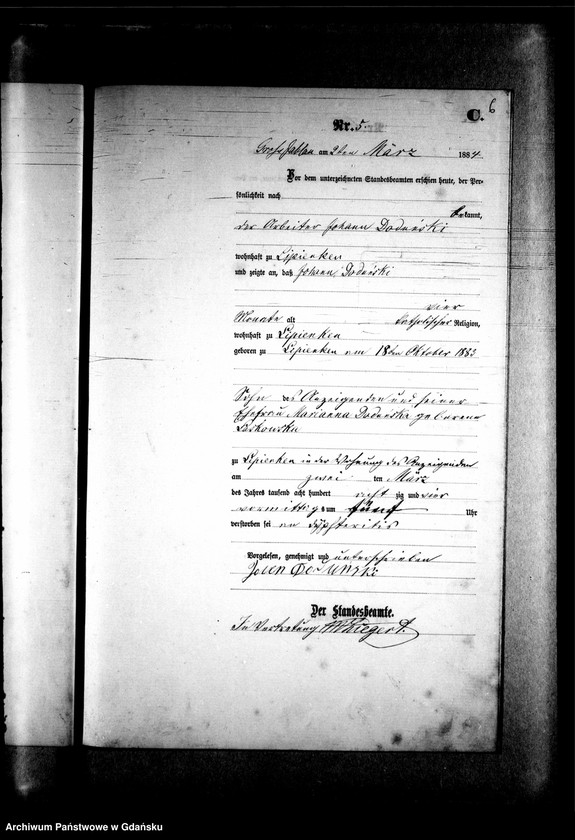 6
C.
Nr. 5.
Groß Jablau am 2ten März 1884
Vor dem unterzeichneten Standesbeamten erschien heute, der Per-
sönlichkeit nach
bekannt,
der Arbeiter Johann
wohnhaft zu Lipienken
und zeigte an, daß Johann
vier
Monate alt katholischer Religion,
wohnhaft zu Lipienken
geboren zu Lipienken am 18ten Oktober 1883
Sohn des Anzeigenden und seiner
Ehefrau Marianna geborene
zu Lipienken in der Wohnung des Anzeigenden
am zwei ten März
des Jahres tausend acht hundert acht zig und vier
vormittags um fünf Uhr
verstorben sei an Dyphteritis
Vorgelesen, genehmigt und unterschrieben
Der Standesbeamte.
In Vertretung
Archiwum Państwowe w Gdańsku